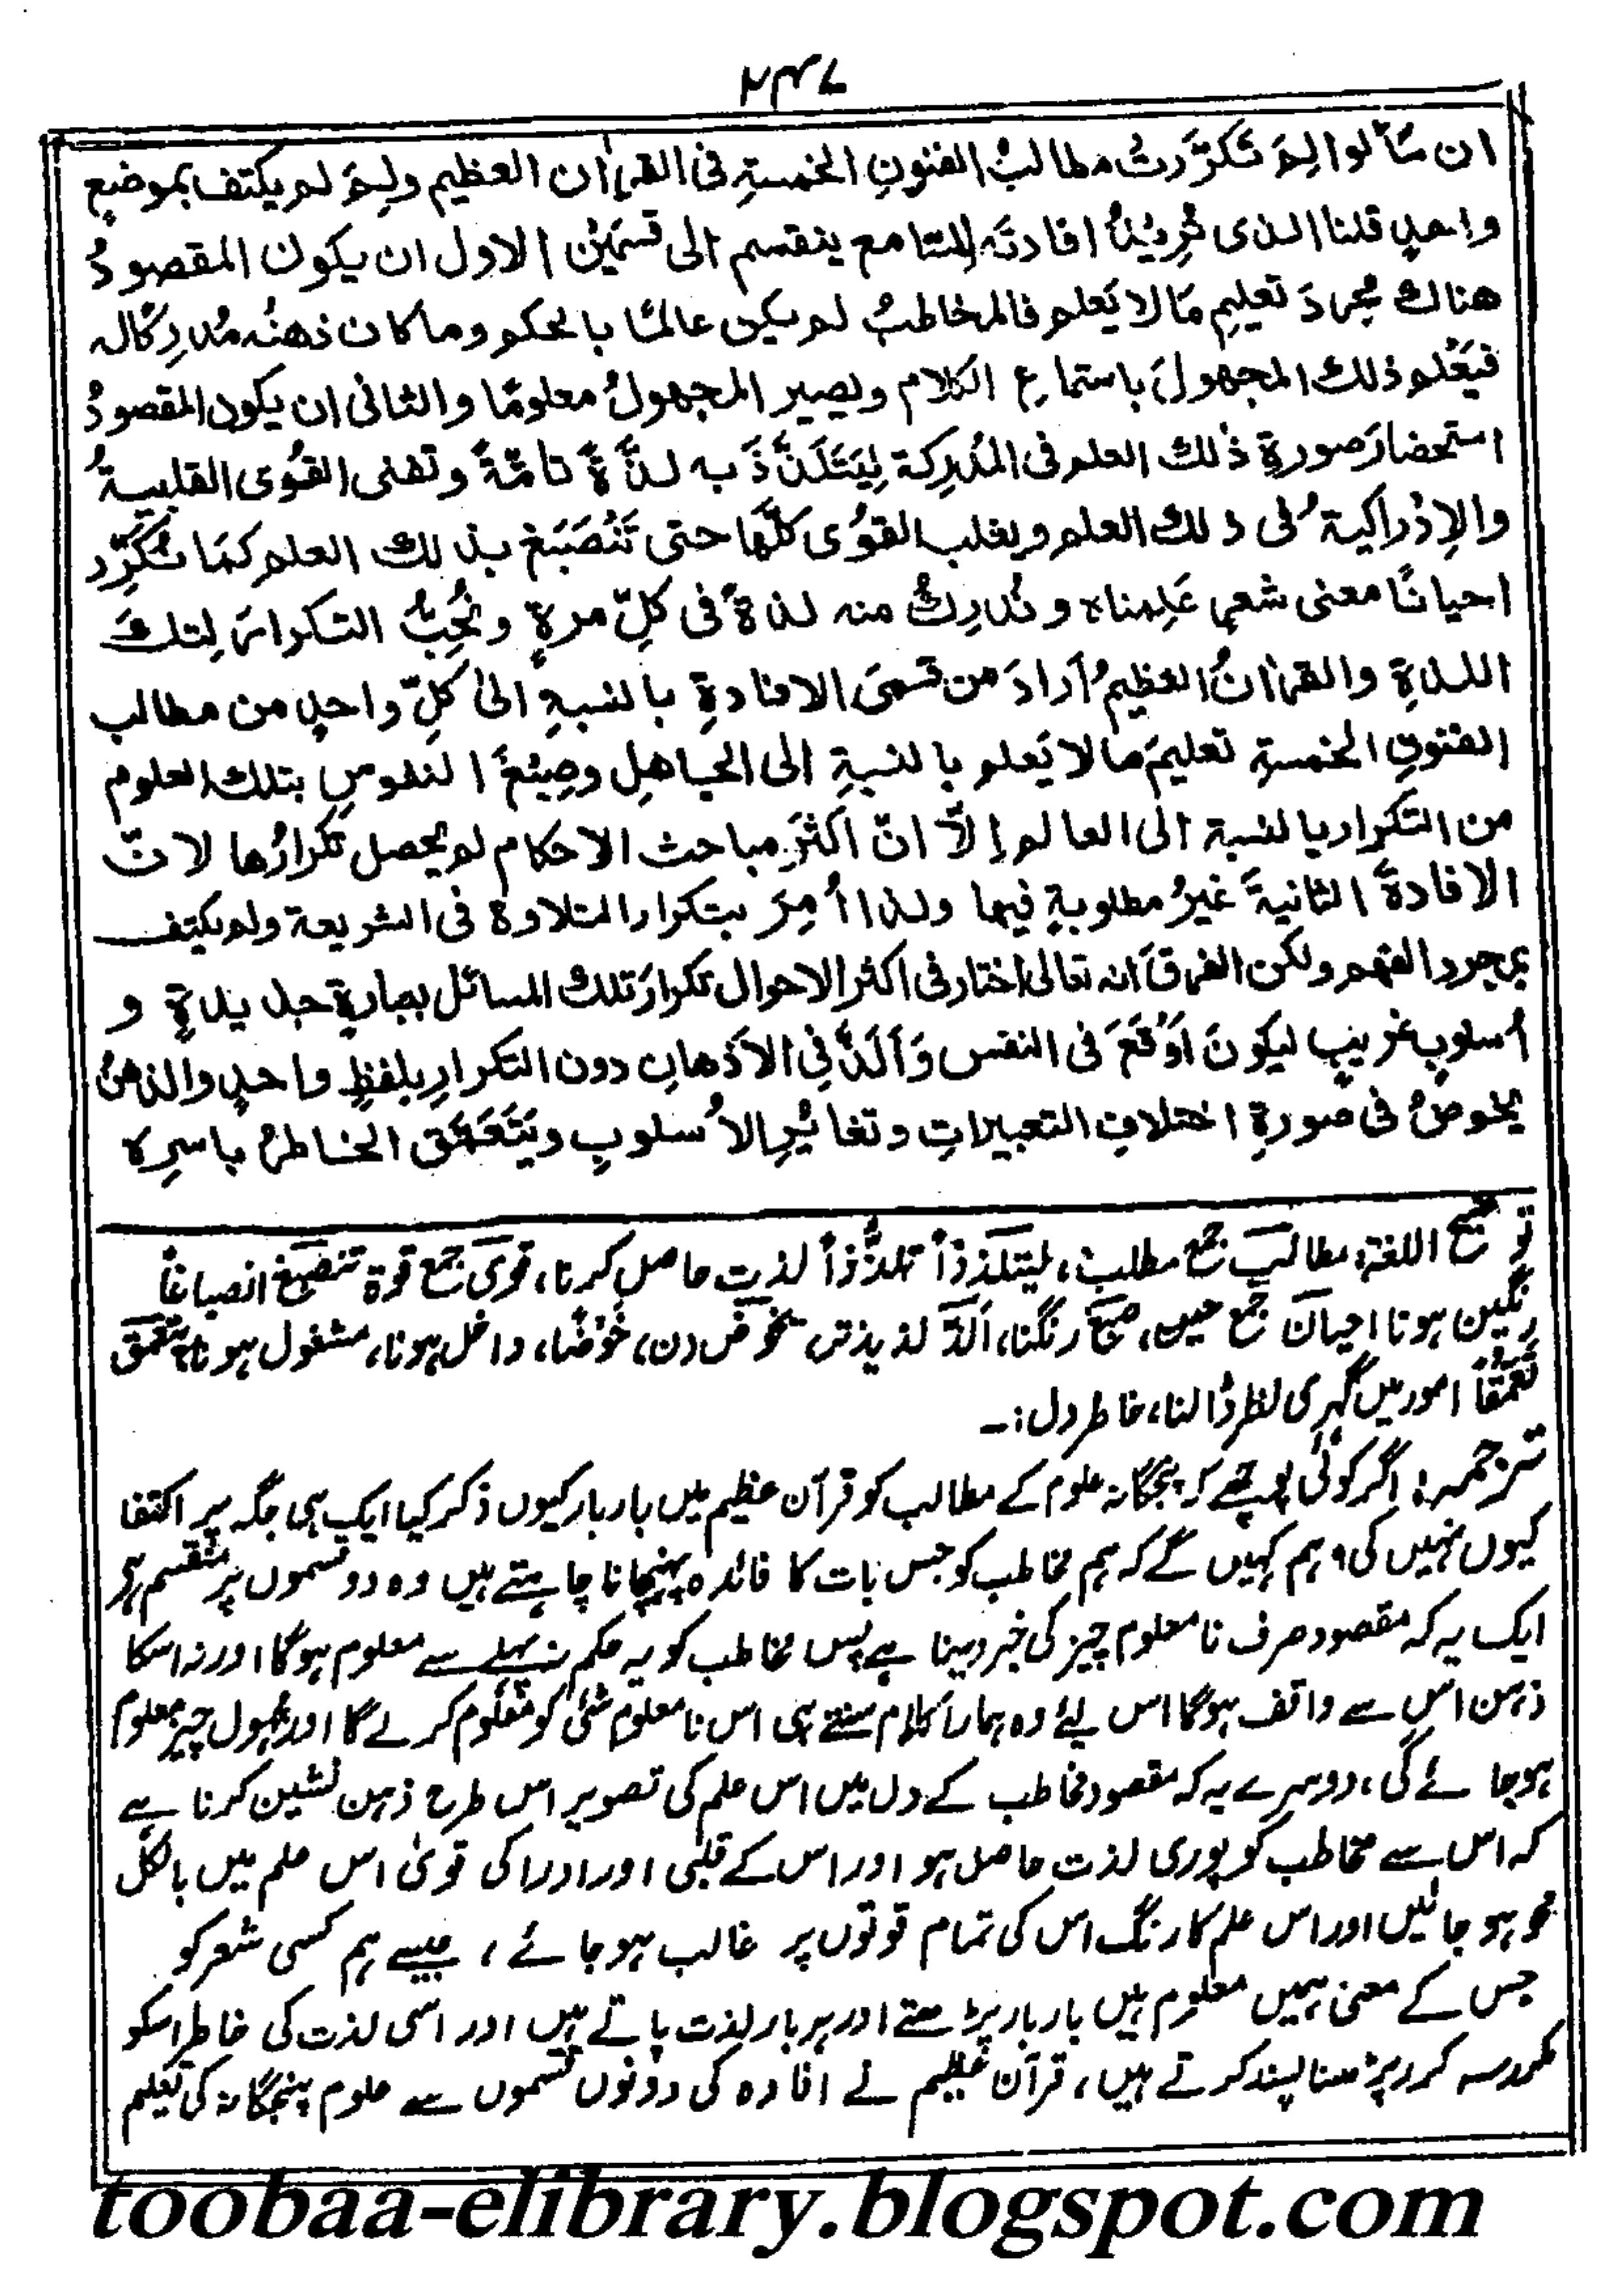 ۲۴۷
ان سَألوا لِمَ تَكرَّرتْ مطالبُ الفنونِ الخمسةِ فى القرآن العظيم ولِمَ لم يكتف بموضعٍ
واحدٍ قلنا الذى نُرِيْدُ افادتَه للسّامع ينقسم الى قسمَيْن الاول ان يكون المقصودُ
هناك مُجردَ تعليمِ مَا لا يَعلم فالمخاطبُ لم يكن عالمًا بالحكم وما كان ذهنُه مُدرِكًا له
فيَعْلم ذلك المجهولَ باستماع الكلام ويصير المجهولُ معلومًا والثانى ان يكون المقصودُ
استحضارَ صورةِ ذٰلك العلم فى المُدرِكة لِيَتَلَذَّذَ به لذَّةً تامّةً وتفنى القُوى القلبيةُ
والإدْراكيةُ فى ذلك العلم ويغلب القوٰى كلَّها حتى تَنْصَبَغ بذلك العلم كمَا نُكَرِّر
احيانًا معنى شعرٍ عَلِمناه ونُدرِكُ منه لذةً فى كلِّ مرةٍ ونُحِبُّ التكرارَ لِتلكَ
اللذةِ والقرآنُ العظيمُ أرادَ من قسمَى الافادةِ بالنسبةِ الىٰ كلِّ واحدٍ من مطالب
الفنونِ الخمسةِ تعليمَ ما لا يَعلم بالنسبةِ الى الجاهلِ وصِبْغَ النفوسِ بتلك العلوم
من التكرار بالنسبة الى العالم إلّا انّ أكثرَ مباحث الاحكام لم يحصل تكرارُها لانّ
الافادةَ الثانيةَ غيرُ مطلوبةٍ فيها ولذا أُمِرَ بتكرار التلاوة فى الشريعة ولم يكتف
بمجرد الفهم ولكن الفرق أنه تعالى اختار فى اكثر الاحوال تكرارَ تلك المسائل بعبارةٍ جديدةٍ و
أسلوبٍ غريبٍ ليكونَ اَوْقَعَ فى النفس وَألَذَّ فِى الأذهانِ دون التكرارِ بلفظٍ واحدٍ والذهنُ
يخوضُ فى صورةِ اختلافِ التعبيراتِ وتغائُرِ الأُسلوبِ ويَتَعَمَّق الخاطرُ باسرِه
توضیح اللغۃ: مطالب جمع مطلب، لیتلذذ تلذُّذاً لذت حاصل کرنا، قوی جمع قوۃ تنصبغ انصباغاً
رنگین ہونا احیان جمع حین، صبغ رنگنا، اَلَذّ لذیذتر، یخوض (ن) خَوْضًا، داخل ہونا، مشغول ہونا یتعمق
تَعَمُّقاً امور میں گہری نظر ڈالنا، خاطر دل :۔
ترجمہ: اگر کوئی پوچھے کہ پنجگانہ علوم کے مطالب کو قرآن عظیم میں باربار کیوں ذکر کیا ایک ہی جگہ پر اکتفا
کیوں نہیں کی؟ ہم کہیں گے کہ ہم مخاطب کو جس بات کا فائدہ پہنچانا چاہتے ہیں وہ دو قسموں پر منقسم ہے
ایک یہ کہ مقصود صرف نا معلوم چیز کی خبر دینا ہے پس مخاطب کو یہ حکم نہ پہلے سے معلوم ہوگا اور نہ اسکا
ذہن اس سے واقف ہوگا اس لیئے وہ ہمارا کلام سنتے ہی اس نا معلوم شئی کو معلوم کرلے گا اور مجہول چیز معلوم
ہوجائے گی، دوسرے یہ کہ مقصود مخاطب کے دل میں اس علم کی تصویر اس طرح ذہن نشین کرنا ہے
کہ اس سے مخاطب کو پوری لذت حاصل ہو اور اس کے قلبی اور ادراکی قویٰ اس علم میں بالکل
محو ہو جائیں اور اس علم کا رنگ اس کی تمام قوتوں پر غالب ہو جائے، جیسے ہم کسی شعر کو
جس کے معنی ہمیں معلوم ہیں بار بار پڑھتے اور ہر بار لذت پاتے ہیں اور اسی لذت کی خاطر اسکو
مکررسہ کرر پڑھنا پسند کرتے ہیں، قرآن عظیم نے افادہ کی دونوں قسموں سے علوم پنجگانہ کی تعلیم
toobaa-elibrary.blogspot.com